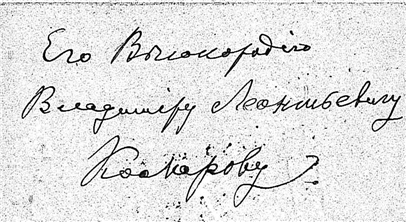 Его Высокородію
Владиміру Леонтьевичу
Комарову